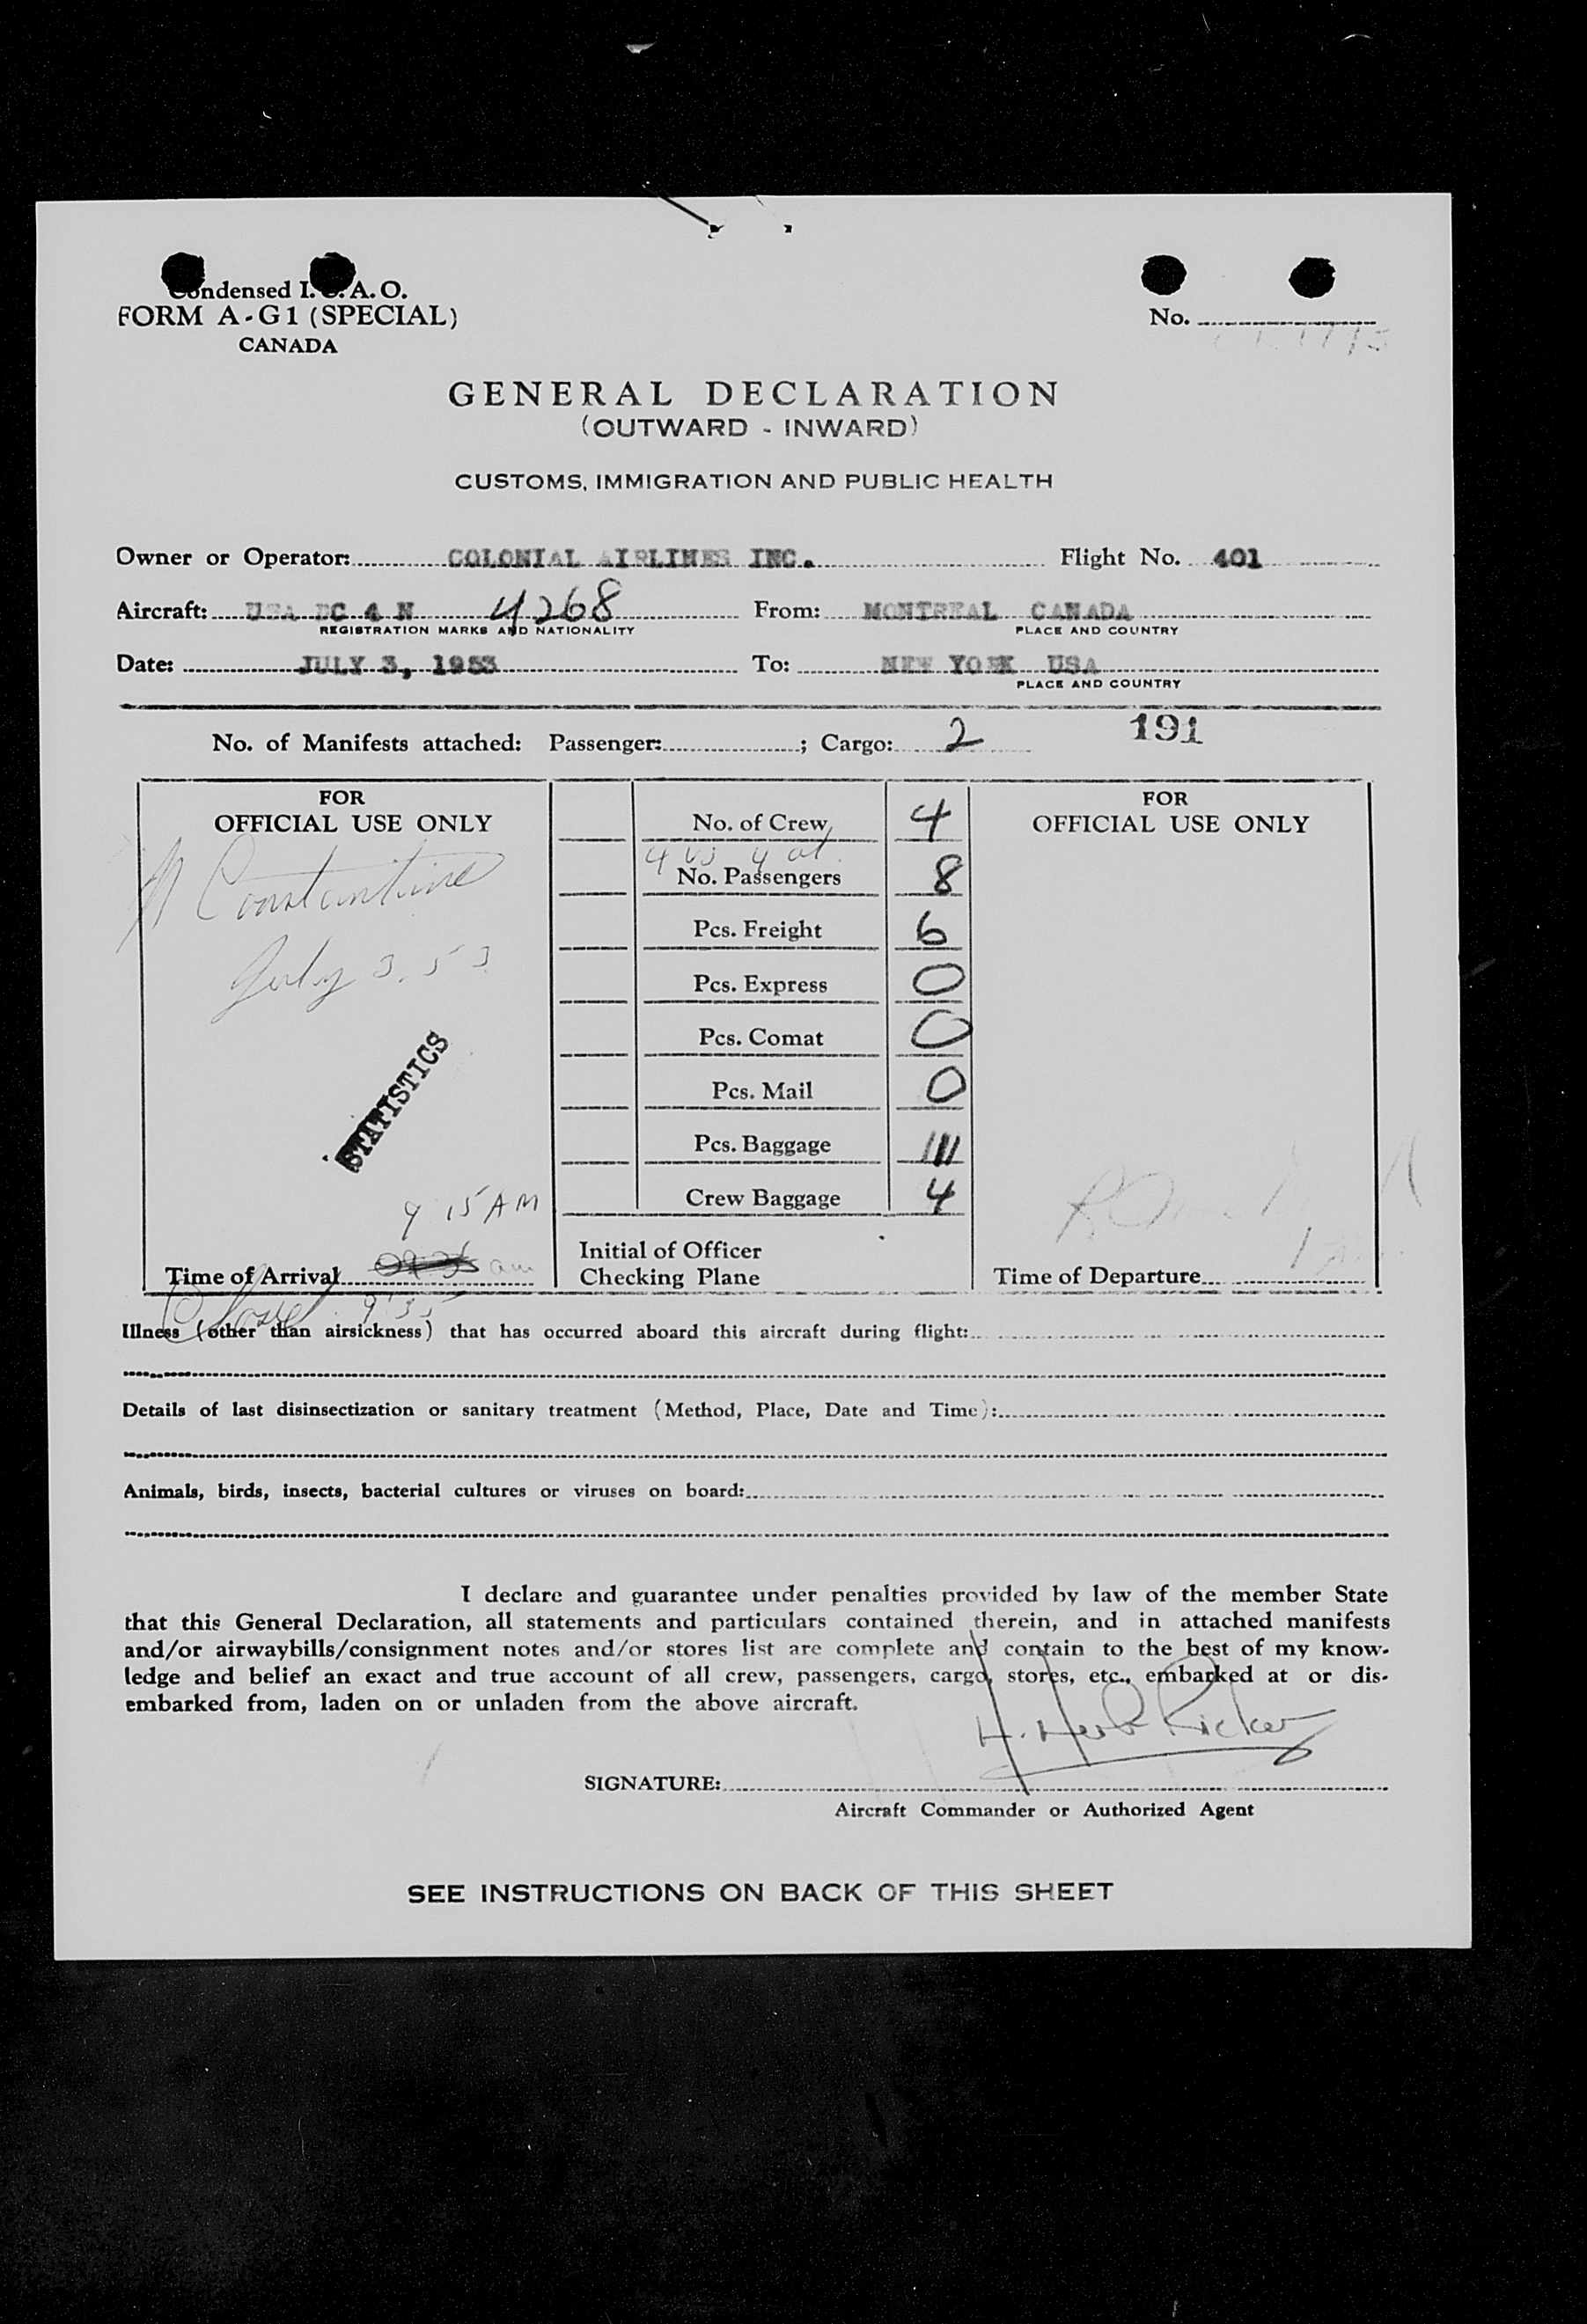 Condensed I.C.A.O.
FORM A-G1 (SPECIAL)
CANADA
No.
GENERAL DECLARATION
(OUTWARD - INWARD)
CUSTOMS, IMMIGRATION AND PUBLIC HEALTH
Owner or Operator: COLONIAL AIRLINES INC. Flight No. 401
Aircraft: USA DC 4 N 4268 From: MONTREAL CANADA
REGISTRATION MARKS AND NATIONALITY PLACE AND COUNTRY
Date: JULY 3, 1953 To: NEW YORK USA
PLACE AND COUNTRY
No. of Manifests attached: Passenger: ; Cargo: 2 191
FOR
OFFICIAL USE ONLY
Constantine
July 3. 53
STATISTICS
9 15 AM
Time of Arrival am
9:35
No. of Crew 4
4 us 4 al
No. Passengers 8
Pcs. Freight 6
Pcs. Express 0
Pcs. Comat 0
Pcs. Mail 0
Pcs. Baggage 11
Crew Baggage 4
Initial of Officer
Checking Plane
FOR
OFFICIAL USE ONLY
Time of Departure
Illness (other than airsickness) that has occurred aboard this aircraft during flight:
Details of last disinsectization or sanitary treatment (Method, Place, Date and Time):
Animals, birds, insects, bacterial cultures or viruses on board:
I declare and guarantee under penalties provided by law of the member State
that this General Declaration, all statements and particulars contained therein, and in attached manifests
and/or airwaybills/consignment notes and/or stores list are complete and contain to the best of my know-
ledge and belief an exact and true account of all crew, passengers, cargo, stores, etc., embarked at or dis-
embarked from, laden on or unladen from the above aircraft.
H. Herb Ricker
SIGNATURE:
Aircraft Commander or Authorized Agent
SEE INSTRUCTIONS ON BACK OF THIS SHEET